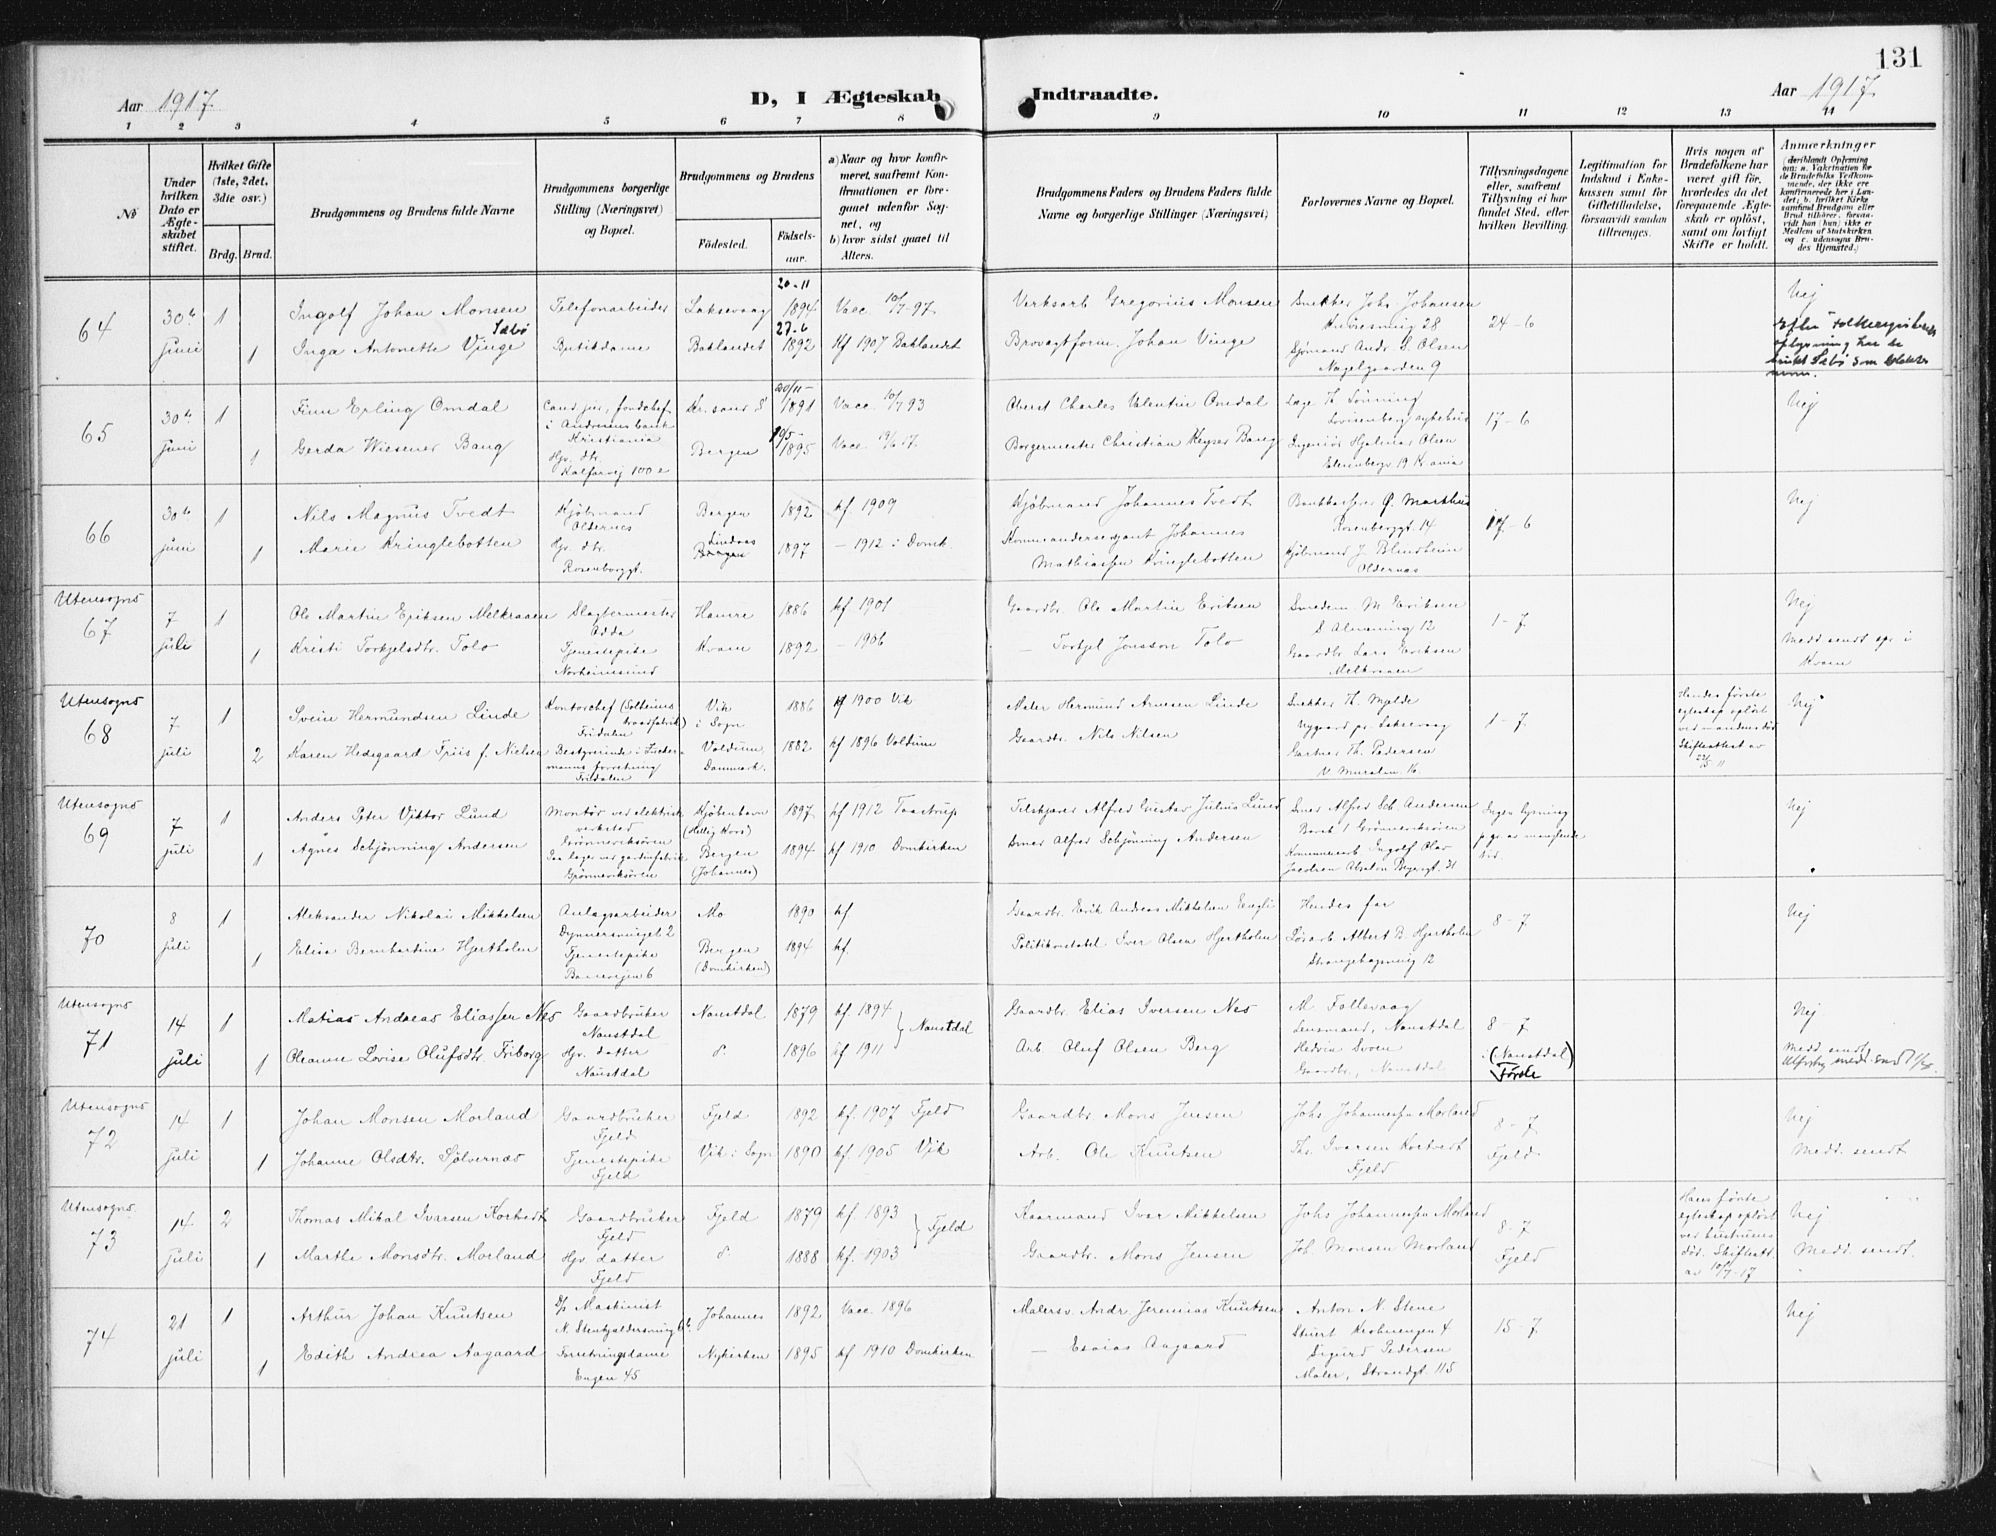 131
Aar 1917
D, I Ægteskab Indtraadte.
Aar 1917
1 2 3 4 5 6 7 8 9 10 11 12 13 14
No
Under hvilken Dato er Ægteskabet stiftet.
Hvilket Gifte (1ste, 2det, 3die osv.)
Brdg. Brud.
Brudgommens og Brudens fulde Navne
Brudgommens borgerlige Stilling (Næringsvei) og Bopæl.
Brudgommens og Brudens
Födested.
Födselsaar.
a) Naar og hvor konfirmeret, saafremt Konfirmationen er foregaaet udenfor Sognet, og
b) hvor sidst gaaet til Alters.
Brudgommens Faders og Brudens Faders fulde Navne og borgerlige Stillinger (Næringsvei)
Forlovernes Navne og Bopæl.
Tillysningsdagene eller, saafremt Tillysning ei har fundet Sted, efter hvilken Bevilling.
Legitimation for Indskud i Enkekassen samt for Giftetilladelse, forsaavidt saadan tiltrænges.
Hvis nogen af Brudefolkene har været gift för, hvorledes da det foregaaende Ægteskab er oplöst, samt om lovligt Skifte er holdt.
Anmærkninger
64
30te juni
1
1
Ingolf Johan Monsen
Sæbö
Inga Antonette Vinge
Telefonarbeider
Butikdame
Laksevaag
Baklandet
20-11
1894
27-6
1892
Vacc. 10/7-97
Kf 1907 Baklandet
Verksarb Gregorius Monsen
Brovagtform. Johan Vinge
Snekker Johs. Johansen
28
Sjømand Andr. S. Olsen
Nagelgaarden 9
24-6
Nej
65
30te juni
1
1
Finn Erling Omdal
Gerda Wiesener Bang
Cand jur, fondchef
i Andresens bank
Kristiania
Hjv. dtr.
Kalfarvej 100 e
Kr.sand S
Bergen
20/11-
1891
10/5-
1895
Vacc. 10/7 93
Vacc. 19/6 17.
Oberst Charles Valentin Omdal
Borgermester Christian Keyser Bang
Læge Th. Lönning
Lovisenberg sykehus
Ingeniör Hjalmar Olsen
19 Kr.ania
17-6
Nej
66
30te juni
1
1
Nils Magnus Tvedt
Marie Kringlebotten
Kjöbmand
Oldernes
Hjv. dtr.
Rosenborggt.
Bergen
Lindaas
Bergen
1892
1897
kf. 1909
- 1912 i Domk.
Kjöbmand Johannes Tvedt
Kommandersersjant Johannes
Mathiassen Kringlebotten
Bankkasserer Ø. Markhus
Rosenberggt. 14
Kjöbmand J. Blindheim
Oldernes
17-6
Nej
Utensogns
67
7 juli
1
1
Ole Martin Eriksen Melkraaen
Kristi Torkjelsdtr. Tolo
Slagtermester
Odda
Tjenestepike
Norheimsund
Hamre
Kvam
1886
1892
kf 1901
- 1906
Gaardbr. Ole Martin Eriksen
- Torkjel Jonsson Tolo
Smedem. M. Eriksen
S Almenning 12
Gaardbr Lars Eriksen
Melkraaen
1-7
Nej
Medd sendt spr. i
Kvam
Utensogns
68
7 juli
1
2
Svein Hermundsen Linde
Karen Hedegaard Friis f. Nielsen
Kontorchef (Solheims
Fridalen
Bestyrerinde i Zuckermanns forretning
Fridalen
Vik
i Sogn
Voldum
Danmark.
1886
1882
kf 1900 Vik
kf 1896 Voldum
Maler Hermund Arnesen Linde
Gaardbr. Nils Nilsen
Snekker Th. Malde
Nygaard pr. Laksevaag
Gartner Th. Pedersen
V. Muralm. 16
1-7
Hendes förste
egteskap oplöst
ved mandens död
Skifteattest av
22/5 11
Nej
Utensogns
69
7 juli
1
1
Anders Peter Viktor Lund
Agnes Schjönning Andersen
Montör ved elektrisk
verksted
Grönneviksören
Paa lager ved gardinfabrik
Grönneviksören
Kjöbenhavn
(Hellig Kors)
Bergen
(Johannes)
1897
1894
kf 1912 Taastrup
kf 1910 Domkirken
Alfred Gustav Julius Lund
Smed Alfred Schjönning Andersen
Smed Alfred Sch. Andersen
Barak 1 Grönneviksören
Kommunearb Ingolf Olav
Jacobsen Absalon Beyersgt. 31
Ingen lysning
p.gr. av manglende
tid.
Nej
70
8 juli
1
1
Aleksander Nikolai Mikkelsen
Elisa Bernhardine Hjertholm
Anlægsarbeider
Dynnersmuget 2
Tjenestepike
Banevejen 6
Mo
Bergen
(Domkirken)
1890
1894
kf
kf.
Gaardbr. Erik Andreas Mikkelsen Engli
Politikonstabel Iver Olsen Hjertholm
Hendes far
Lösarb Albert B. Hjertholm
Strangehagen 12
8-7
Nej
Utensogns
71
14 juli
1
1
Matias Andreas Eliassen Nes
Oleanne Lovise Olufsdtr. Friborg
Gaardbruker
Naustdal
Hjv. datter
Naustdal
Naustdal
do
1879
1896
kf 1894
kf 1911
Naustdal
Gaardbr. Elias Iversen Nes
Arb. Oluf Olsen Berg
M. Follevaag
Lensmand, Naustdal
Hedvin Svoen
Gaardbr., Naustdal
8-7
i (Naustdal)
Förde
Nej
Medd sendt
Utensogns
72
14 juli
1
1
Johan Monsen Morland
Johanne Olsdtr. Sjölvernæs
Gaardbruker
Fjeld
Tjenestepike
Fjeld
Fjeld
Vik i Sogn
1892
1890
kf. 1907 Fjeld
kf. 1905 Vik
Gaardbr. Mons Jensen
Arb. Ole Knutsen
Johs. Johannessen Morland
Th. Ivarsen Kortvedt
Fjeld
8-7
Fjeld
Nej
Medd. sendt
Utensogns.
73
14 juli
2
1
Thomas Mikal Ivarsen Kortvedt
Marthe Monsdtr. Morland
Gaardbruker
Fjeld
Hjv datter
Fjeld
Fjeld
do
1879
1888
kf. 1893
kf. 1903
Fjeld
Kaarmand Ivar Mikkelsen
Gaardbr. Mons Jensen
Johs Johannessen Morland
Joh. Monsen Morland
8-7
Fjeld
Hans förste
egteskap oplöst
ved hustruens
död. Skifteatt.
av 10/7-17
Nej
Medd. sendt.
74
21 juli
1
1
Arthur Johan Knutsen
Edith Andrea Aagaard
D/s Maskinist
N. Stenkjeldersmug 6 b.
Forretningsdame
Engen 45
Johannes
Nykirken
1892
1895
Vacc. 1896
kf 1910 Domkirken
Malersv. Andr. Jeremias Knutsen
- Esaias Aagaard
Anton N. Stene
Stuert 4
Sigurd Pedersen
Maler, Strandgt. 115
15-7
Nej